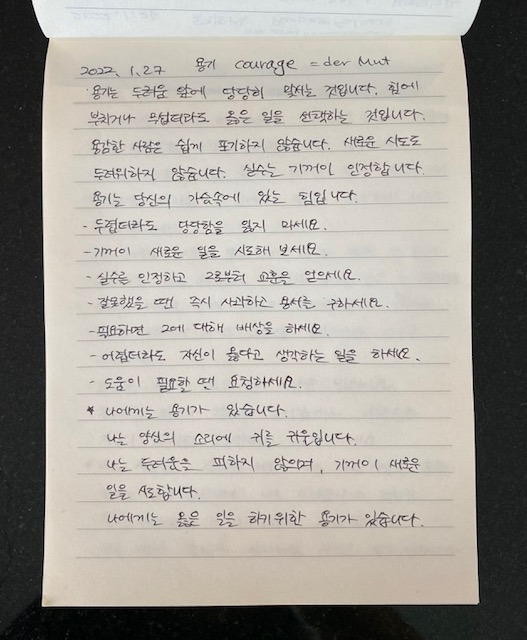 2022. 1. 27 용기 courage = der Mut
용기는 두려움 앞에 당당히 맞서는 것입니다. 힘에
부치거나 무섭더라도 옳은 일을 선택하는 것입니다.
용감한 사람은 쉽게 포기하지 않습니다. 새로운 시도도
두려워하지 않습니다. 실수는 기꺼이 인정합니다.
용기는 당신의 가슴속에 있는 힘입니다.
- 두렵더라도 당당함을 잃지 마세요.
- 기꺼이 새로운 일을 시도해 보세요.
- 실수를 인정하고 그로부터 교훈을 얻으세요.
- 잘못했을 땐 즉시 사과하고 용서를 구하세요.
- 필요하면 그에 대해 배상을 하세요.
- 어렵더라도 자신이 옳다고 생각하는 일을 하세요.
- 도움이 필요할 땐 요청하세요.
* 나에게는 용기가 있습니다.
나는 양심의 소리에 귀를 귀웁입니다.
나는 두려움을 피하지 않으며, 기꺼이 새로운
일을 시도합니다.
나에게는 옳은 일을 하기 위한 용기가 있습니다.